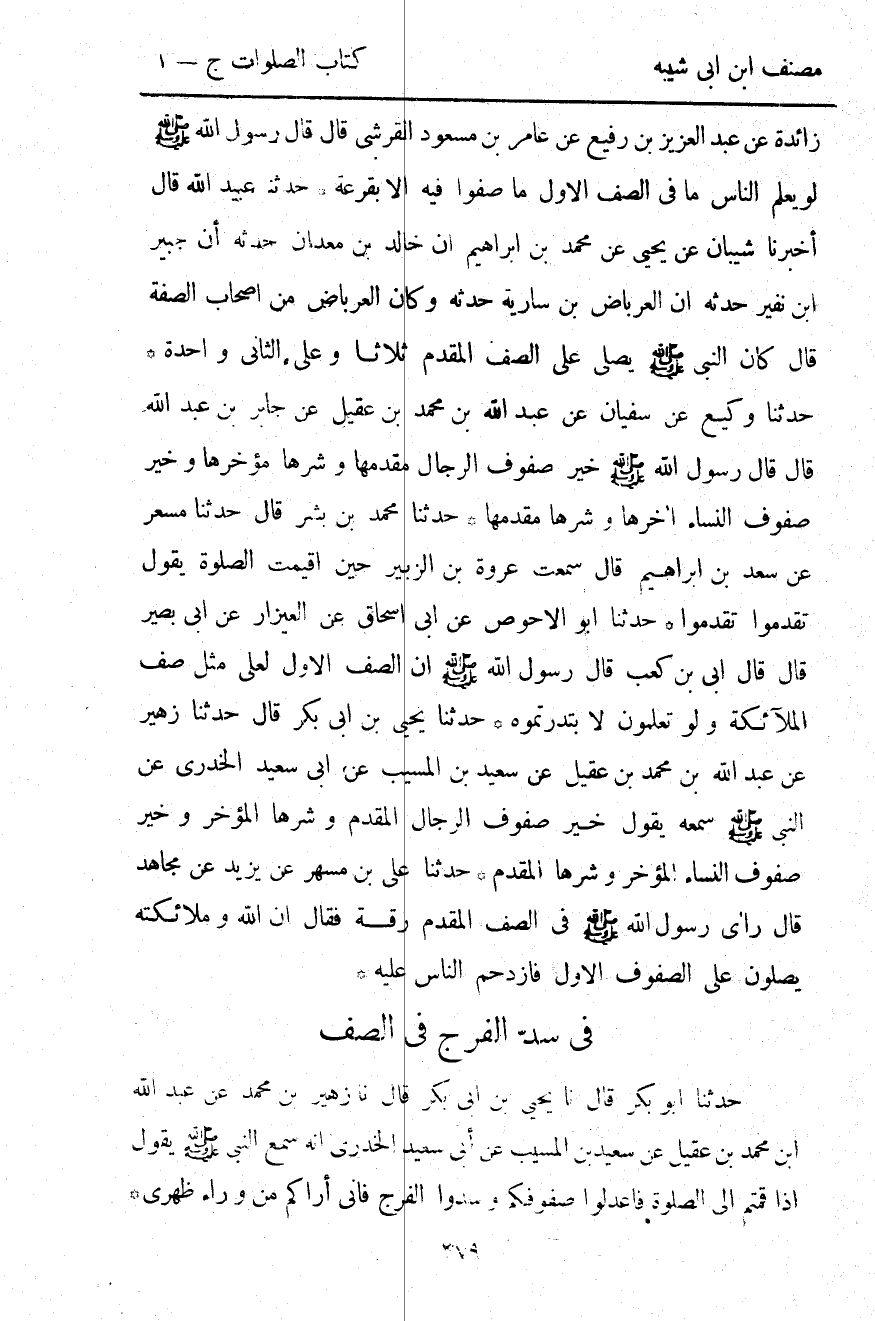 مصنف ابن ابى شيبه كتاب الصلوات ج – ١
زائدة عن عبد العزيز بن رفيع عن عامر بن مسعود القرشى قال قال رسول الله ﷺ
لو يعلم الناس ما فى الصف الاول ما صفوا فيه الا بقرعة * حدثنا عبيد الله قال
أخبرنا شيبان عن يحيى عن محمد بن ابراهيم ان خالد بن معدان حدثه أن جبير
ابن نفير حدثه ان العرباض بن سارية حدثه وكان العرباض من اصحاب الصفة
قال كان النبى ﷺ يصلى على الصف المقدم ثلاثا و على الثانى و احدة *
حدثنا وكيع عن سفيان عن عبد الله بن محمد بن عقيل عن جابر بن عبد الله
قال قال رسول الله ﷺ خير صفوف الرجال مقدمها و شرها مؤخرها و خير
صفوف النساء اٰخرها و شرها مقدمها * حدثنا محمد بن بشر قال حدثنا مسعر
عن سعد بن ابراهيم قال سمعت عروة بن الزبير حين اقيمت الصلوة يقول
تقدموا تقدموا * حدثنا ابو الاحوص عن ابى اسحاق عن العيزار عن ابى بصير
قال قال ابى بن كعب قال رسول الله ﷺ ان الصف الاول لعلى مثل صف
الملآئكة و لو تعلمون لا بتدرتموه * حدثنا يحيى بن ابى بكر قال حدثنا زهير
عن عبد الله بن محمد بن عقيل عن سعيد بن المسيب عن ابى سعيد الخدرى عن
النبى ﷺ سمعه يقول خير صفوف الرجال المقدم و شرها المؤخر و خير
صفوف النساء المؤخر و شرها المقدم * حدثنا على بن مسهر عن يزيد عن مجاهد
قال راٰى رسول الله ﷺ فى الصف المقدم رقة فقال ان الله و ملائكته
يصلون على الصفوف الاول فازدحم الناس عليه *
فى سدّ الفرج فى الصف
حدثنا ابو بكر قال نا يحيي بن ابى بكر قال نا زهير بن محمد عن عبد الله
ابن محمد بن عقيل عن سعيد بن المسيب عن أبى سعيد الخدرى انه سمع النبى ﷺ يقول
اذا قمتم الى الصلوة فاعدلوا صفوفكم و سدوا الفرج فانى أراكم من و راء ظهرى *
٣٧٩